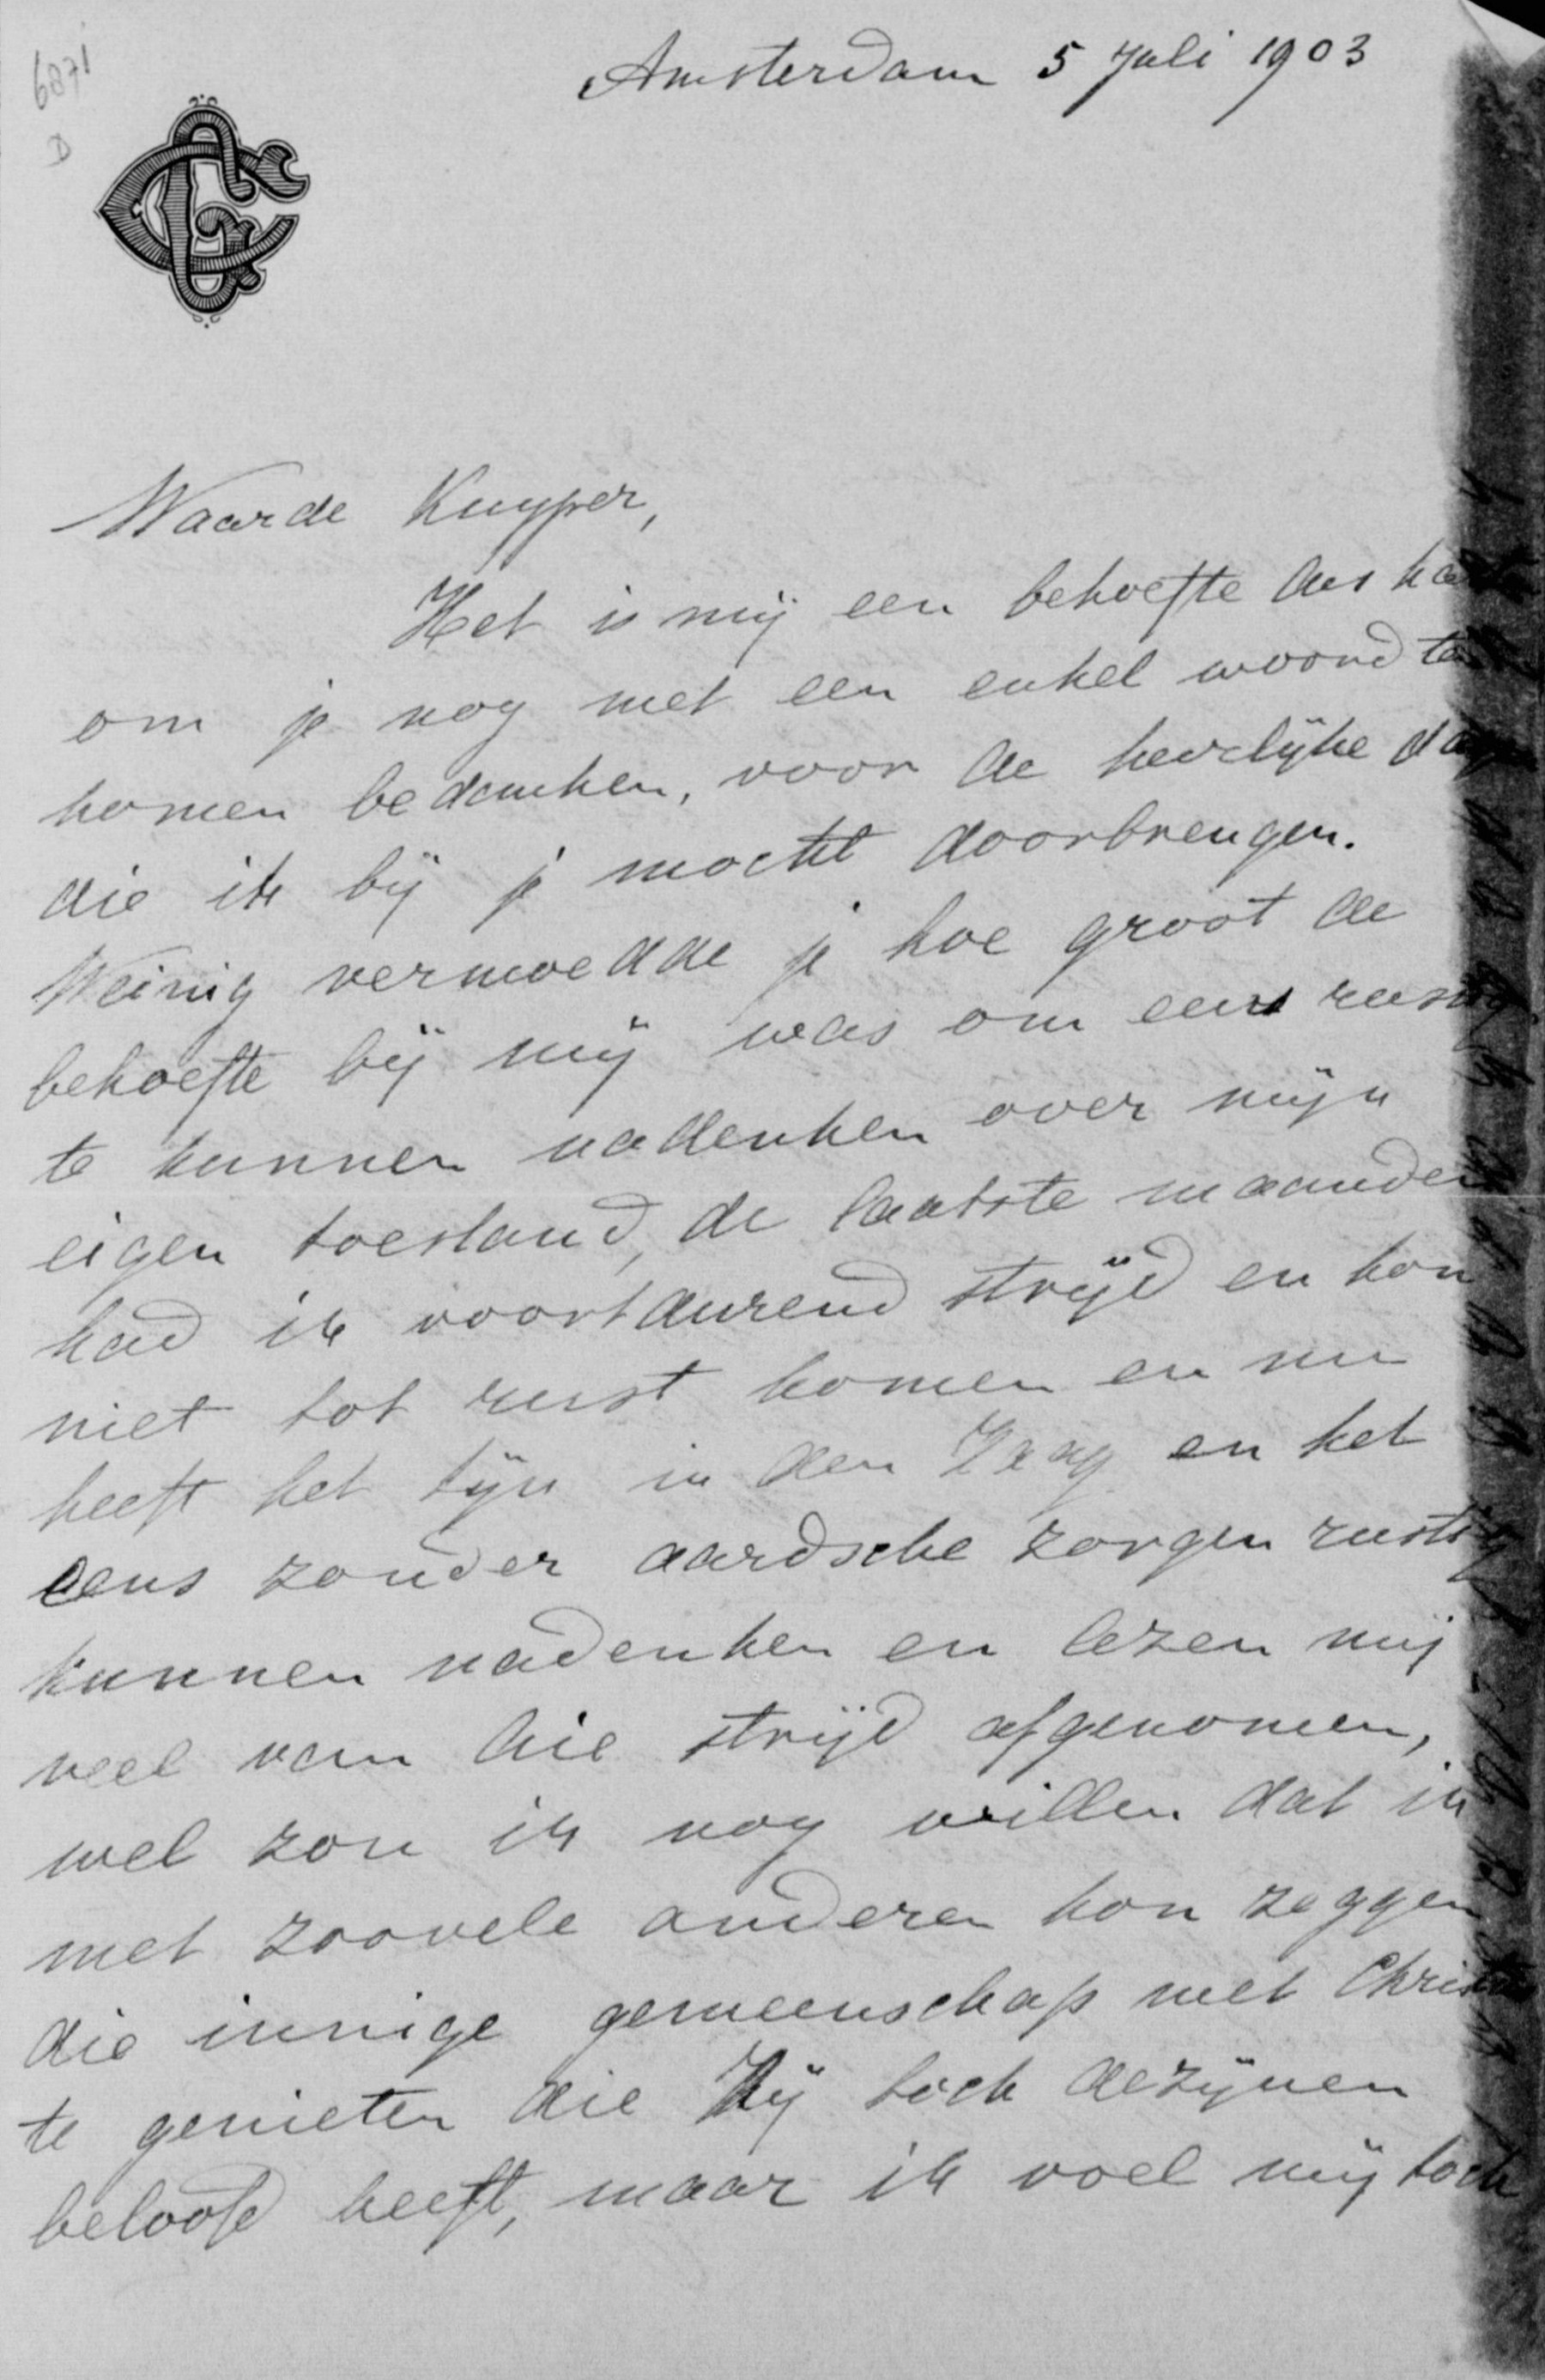 6871
D
Amsterdam 5 Juli 1903
Waarde Kuyper,
Het is mij een behoefte des
om je nog met een enkel woord te
komen bedanken, voor de heerlijke
die ik bij je mocht doorbrengen.
Weinig vermoedde je hoe groot de
behoefte bij mij was om eens rustig
te kunnen nadenken over mijn
eigen toestand, de laatste maanden
had ik voortdurend strijd en kon
niet tot rust komen en nu
heeft het zijn in den Haag en het
eens zonder aardsche zorgen rustig
kunnen nadenken en lezen mij
veel van die strijd afgenomen,
wel zou ik nog willen dat ik
met zoovele anderen kon zeggen
die innige gemeenschap met
te genieten die Hij toch dezijnen
beloofd heeft, maar ik voel mij toch